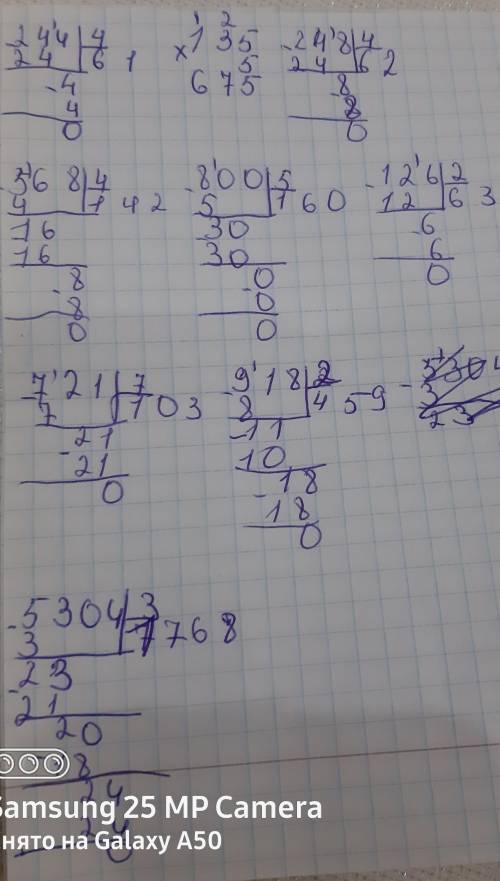 -244 | 4
24 | 61
-4
4
0
× 135
5
675
1 2
-248 | 4
24 | 62
-8
8
0
-568 | 4
4 | 142
16
16
-8
8
0
-800 | 5
5 | 160
-30
30
-0
0
0
-126 | 2
12 | 63
-6
6
0
-721 | 7
7 | 103
-21
21
0
-918 | 2
8 | 459
-11
10
-18
18
0
-5304
3
23
-5304 | 3
3 | 1768
-23
21
20
8
24
24
0
Samsung 25 MP Camera
нято на Galaxy A50